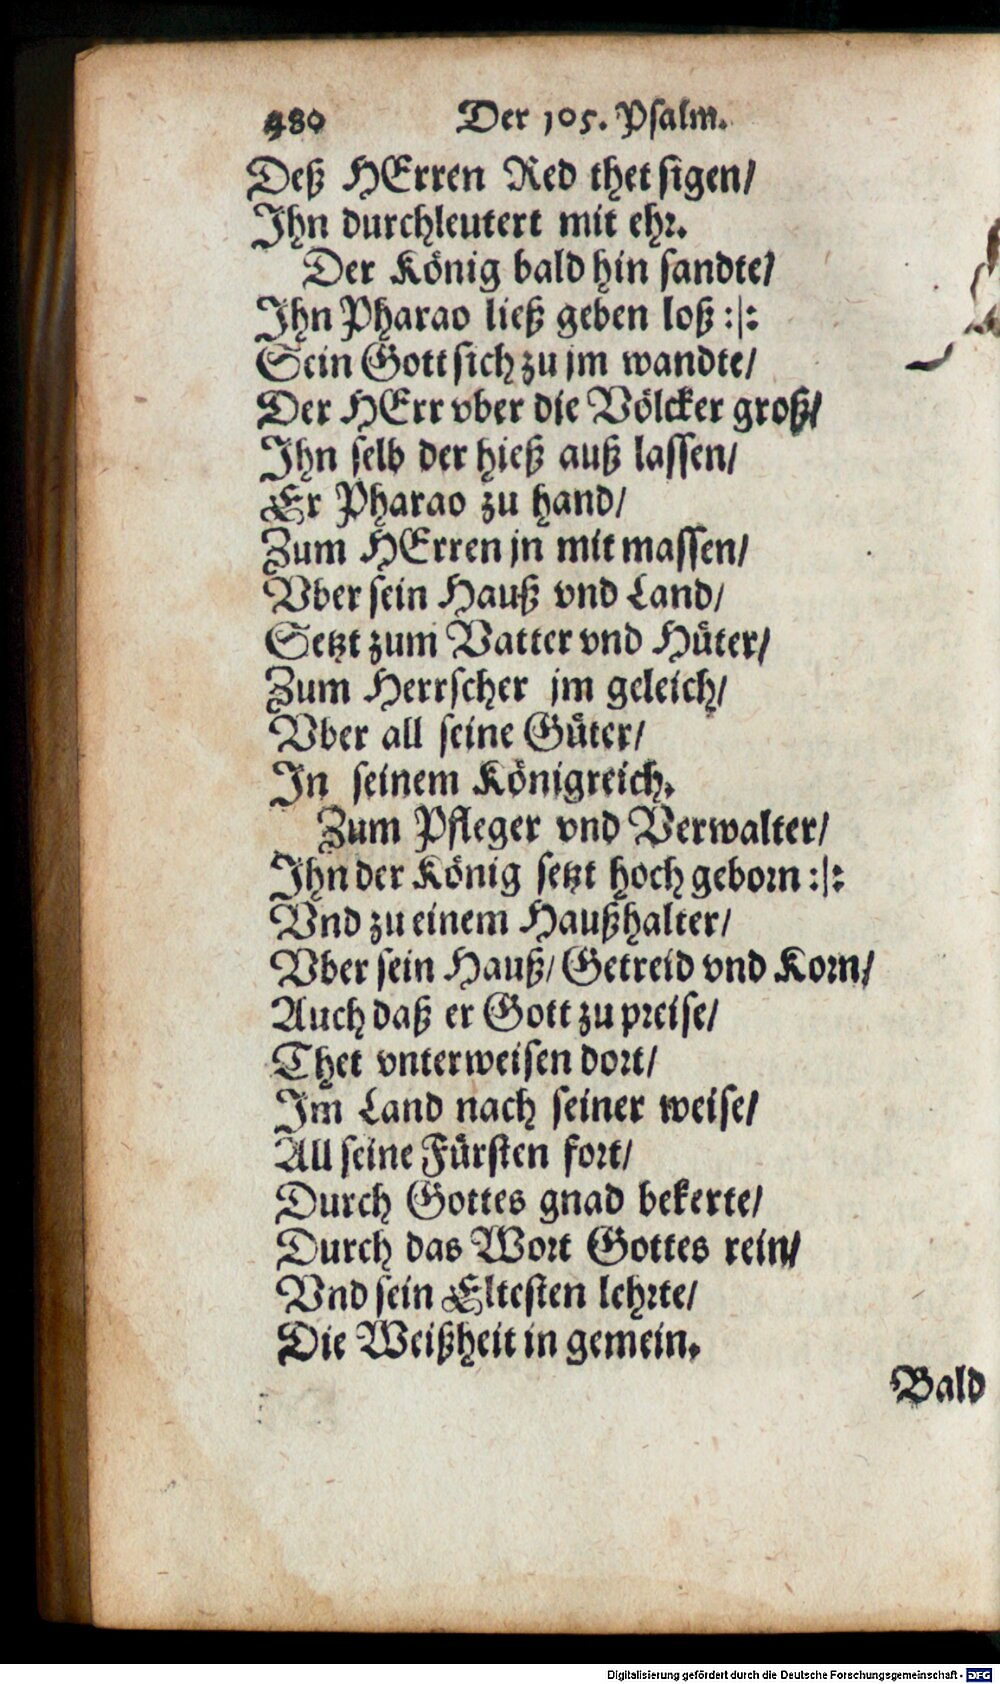 480 Der 105. Psalm.
Deß HErren Red thet sigen/
Ihn durchleutert mit ehr.
Der König bald hin sandte/
Ihn Pharao ließ geben loß :|:
Sein Gott sich zu jm wandte/
Der HErr vber die Völcker groß/
Ihn selb der hieß auß lassen/
Er Pharao zu hand/
Zum HErren jn mit massen/
Vber sein Hauß vnd Land/
Setzt zum Vatter vnd Hüter/
Zum Herrscher jm geleich/
Vber all seine Güter/
In seinem Königreich.
Zum Pfleger vnd Verwalter/
Ihn der König setzt hoch geborn :|:
Vnd zu einem Haußhalter/
Vber sein Hauß/ Getreid vnd Korn/
Auch daß er Gott zu preise/
Thet vnterweisen dort/
Im Land nach seiner weise/
All seine Fürsten fort/
Durch Gottes gnad bekerte/
Durch das Wort Gottes rein/
Vnd sein Eltesten lehrte/
Die Weißheit in gemein.
Bald
Digitalisierung gefördert durch die Deutsche Forschungsgemeinschaft - DFG